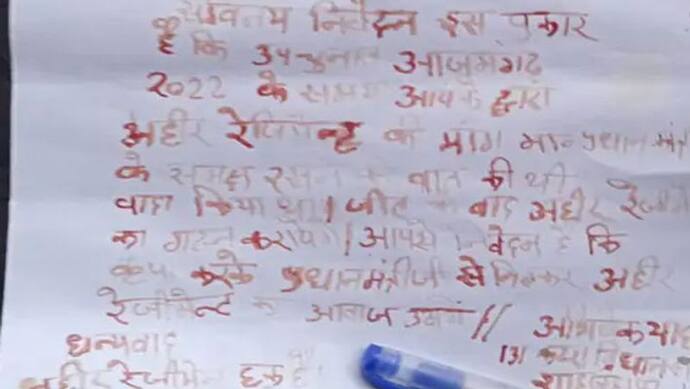 सविनय निवेदन इस प्रकार
है कि उपचुनाव आजमगढ़
2022 के समय आपके द्वारा
अहीर रेजिमेन्ट की मांग मा० प्रधानमंत्री
के समक्ष रखने की बात की थी
वादा किया था। जीत के बाद अहीर रेजी
का गठन कराएंगे। आपसे निवेदन है कि
कृपा करके प्रधानमंत्रीजी से मिलकर अहीर
रेजीमेन्ट की आवाज उठाएं।।
धन्यवाद
अहीर रेजीमेन्ट हक है